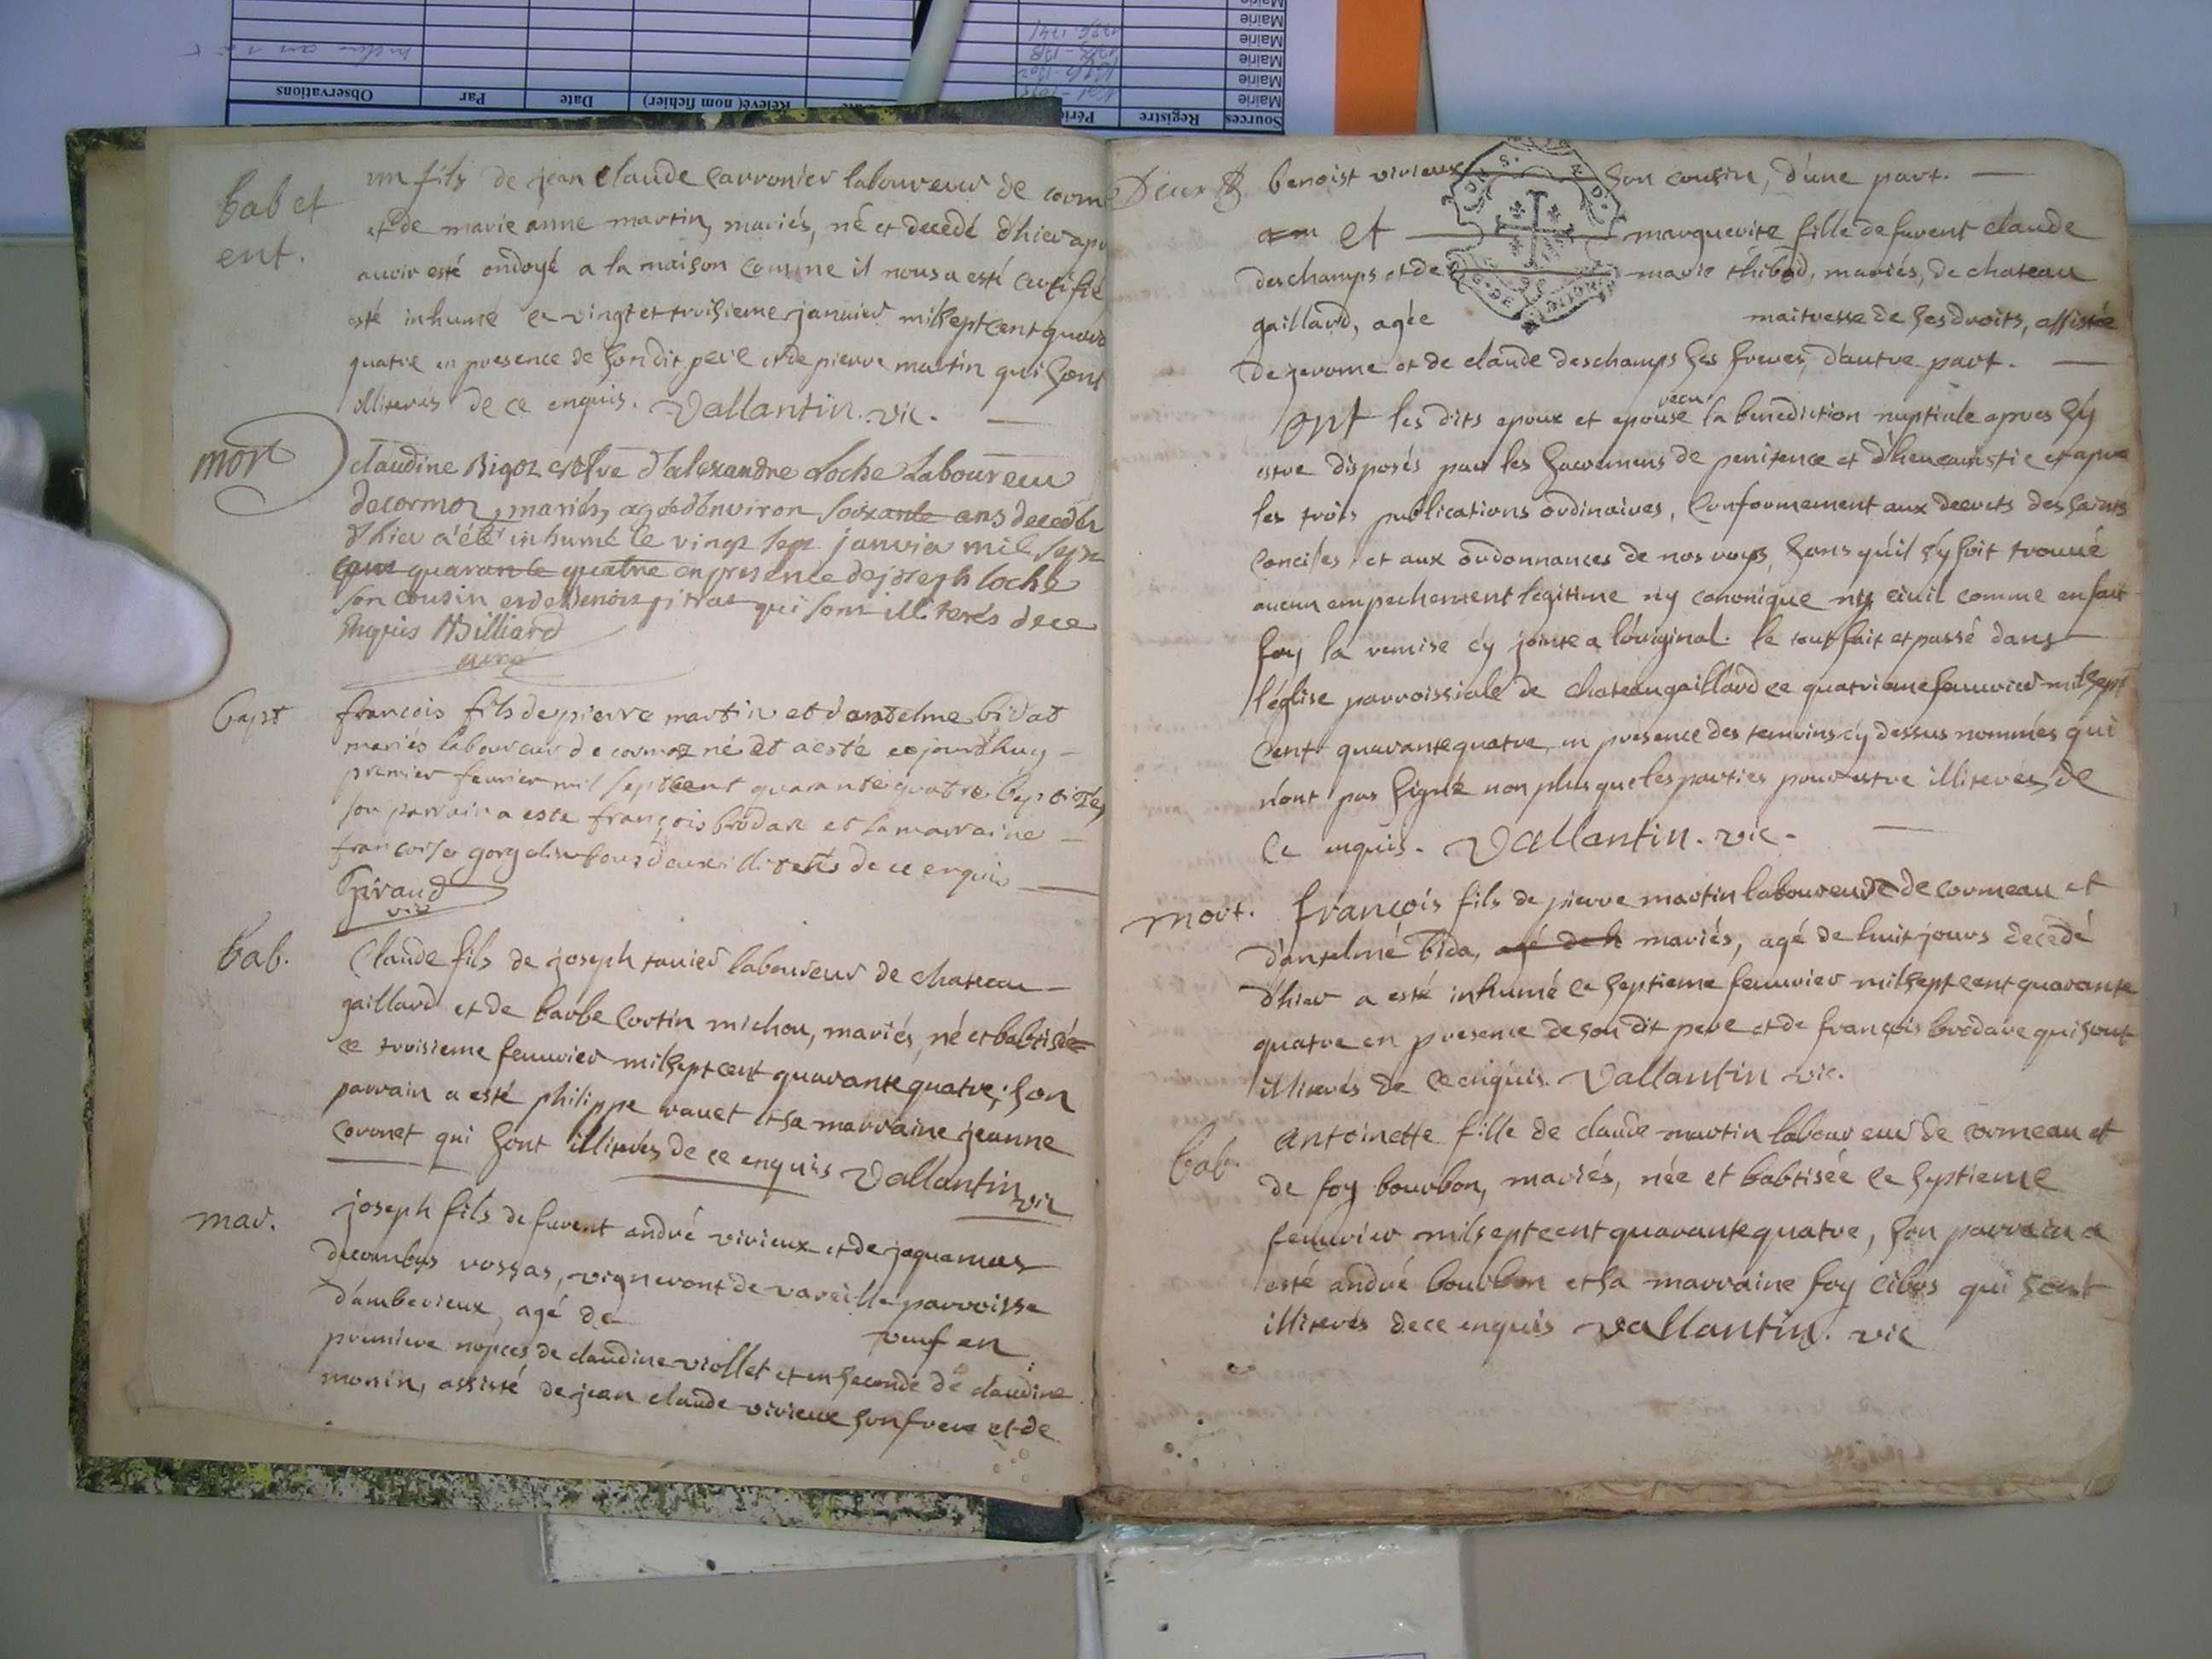 Sources
Registre
Date
Relevé( nom fichier)
Date
Par
Observations
Mairie
Mairie
Mairie
Mairie
bab et
ent.
un fils de jean claude carronier laboureur de corm
et de marie anne martin, mariés, né et decedé d'hier apr
auoir esté ondoyé a la maison comme il nous a esté certifié
esté inhumé ce vingt et troisieme januier mil sept cent quara
quatre en presence de son dit pere et de pierre martin qui sont
illiterés de ce enquis. Vallantin. vic.
mort
claudine d'alexandre Loche Laboureur
de cormoz, mariés, agée d'environ soixante ans decedée
d'hier a été inhumé le vingt sept janvier mil sept
cent quarante quatre en presence de joseph loche
son cousin et de benoit pitrat qui sont illiterés de ce
Enquis Billiard
curé
bapt
francois fils de pierre martin et d'antelme bidat
mariés laboureur de cormoz né et a esté ce jourd'huy
premier feurier mil sept cent quarante quatre baptizé,
son parrain a este françois brodar et la marraine
francoise tous deux illiterés de ce enquis
Giraud
vic
bab.
Claude fils de joseph tauier laboureur de chateau
gaillard et de barbe cortin michon, mariés, né et babtisé
ce troisieme feuurier mil sept cent quarante quatre; son
parrain a esté philippe rauet et sa marraine jeanne
coronet qui sont illiterés de ce enquis Vallantin vic
mar.
joseph fils de furent andré virieux et de jaquemas
decombes rossas, vigneront de vareille parroisse
d'amberieux, agé de veuf en
premiere nopces de claudine viollet et en seconde de claudine
monin, assisté de jean claude virieux son frere et de
Deux S benoist virieux son cousin, d'une part.
et marguerite fille de furent claude
deschamps et de marie thibod, mariés, de chateau
gaillard, agée maitresse de ses droits, assistée
de jerome et de claude deschamps ses freres, d'autre part.
ont les dits epoux et epouse recu la benediction nuptiale apres s'y
estre disposés par les sacremens de penitence et d'heucaristie et apres
les trois publications ordinaires, conformement aux decrets des saints
conciles et aux ordonnances de nos roys, sans qu'il s'y soit trouué
aucun empechement legitime ny canonique ny ciuil comme en fait
foy la remise cy jointe a l'original. le tout fait et passé dans
l'église parroissiale de chateaugaillard ce quatrieme feuurier mil sept
cent quarante quatre, en presence des temoins cy dessus nommés qui
n'ont pas signé non plus que les parties pour estre illiterés de
ce enquis. Vallantin. vic.
mort.
françois fils de pierre martin laboureur de cormeau et
d'antelme bida, agé de h mariés, agé de huit jours decedé
d'hier a esté inhumé ce septieme feuurier mil sept cent quarante
quatre en presence de son dit pere et de françois brodare qui sont
illiterés de ce enquis. Vallantin vic.
bab.
antoinette fille de claude martin laboureur de cormeau et
de foy bourbon, mariés, née et babtisée ce septieme
feuurier mil sept cent quarante quatre, son parrain a
esté andré bourbon et sa marraine foy cibos qui sont
illiterés de ce enquis Vallantin. vic